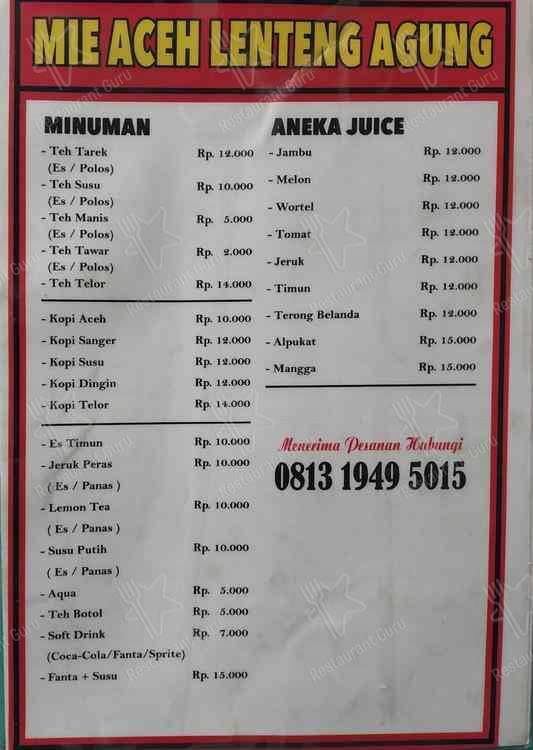 MIE ACEH LENTENG AGUNG
MINUMAN
- Teh Tarek Rp. 12.000
(Es / Polos)
- Teh Susu Rp. 10.000
(Es / Polos)
- Teh Manis Rp. 5.000
(Es / Polos)
- Teh Tawar Rp. 2.000
(Es / Polos)
- Teh Telor Rp. 14.000
- Kopi Aceh Rp. 10.000
- Kopi Sanger Rp. 12.000
- Kopi Susu Rp. 12.000
- Kopi Dingin Rp. 12.000
- Kopi Telor Rp. 14.000
- Es Timun Rp. 10.000
- Jeruk Peras Rp. 10.000
( Es / Panas )
- Lemon Tea Rp. 10.000
( Es / Panas )
- Susu Putih Rp. 10.000
( Es / Panas )
- Aqua Rp. 5.000
- Teh Botol Rp. 5.000
- Soft Drink Rp. 7.000
(Coca-Cola/Fanta/Sprite)
- Fanta + Susu Rp. 15.000
ANEKA JUICE
- Jambu Rp. 12.000
- Melon Rp. 12.000
- Wortel Rp. 12.000
- Tomat Rp. 12.000
- Jeruk Rp. 12.000
- Timun Rp. 12.000
- Terong Belanda Rp. 12.000
- Alpukat Rp. 15.000
- Mangga Rp. 15.000
Menerima Pesanan Hubungi
0813 1949 5015
Restaurant Guru